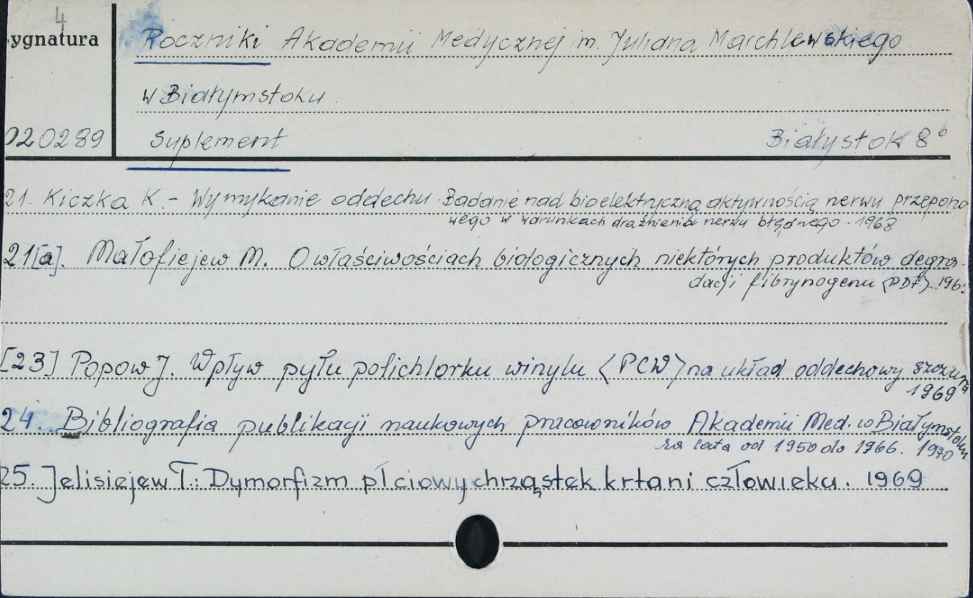 4
ygnatura
Roczniki Akademii Medycznej im. Juliana Marchlewskiego
w Białymstoku
020289 Suplement Białystok 8°
21. Kiczka K. - Wymykanie oddechu. Badanie nad bioelektryczną aktywnością nerwu przepono
wego w warunkach drażnienia nerwu błędnego. 1968
21[a]. Małofiejew M. O właściwościach biologicznych niektórych produktów degra-
dacji fibrynogenu (PDF). 196
[23] Popow J. Wpływ pyłu polichlorku winylu (PCW) na układ oddechowy szczura
1969
24. Bibliografia publikacji naukowych pracowników Akademii Med. w Białymstoku
za lata od 1950 do 1966. 1970
25. Jelisiejew T.: Dymorfizm płciowy chrząstek krtani człowieka. 1969